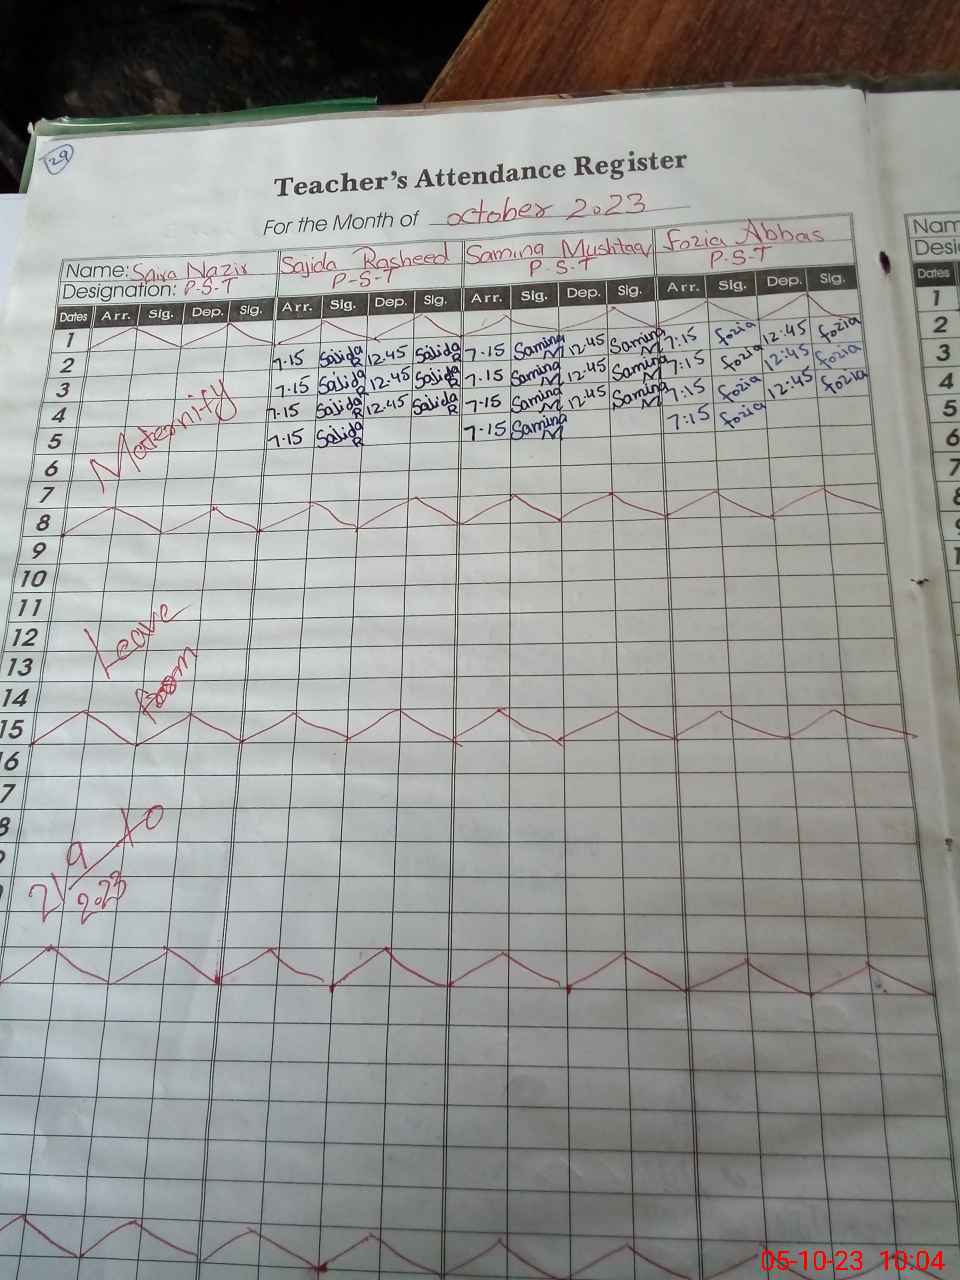 29
Teacher's Attendance Register
For the Month of October 2023
Name: Saira Nazir Sajida Rasheed Samina Mushtaq Fozia Abbas
Designation: P-S-T P-S-T P-S-T P-S-T
Dates Arr. Sig. Dep. Sig. Arr. Sig. Dep. Sig. Arr. Sig. Dep. Sig. Arr. Sig. Dep. Sig.
1
2 7-15 Sajida R 12-45 Sajida R 7-15 Samina M 12-45 Samina M 7:15 fozia 12:45 fozia
3 7-15 Sajida R 12-45 Sajida R 7-15 Samina M 12-45 Samina M 7:15 fozia 12:45 fozia
4 7-15 Sajida R 12-45 Sajida R 7-15 Samina M 12-45 Samina M 7:15 fozia 12:45 fozia
5 7-15 Sajida R 7-15 Samina M 7:15 fozia
Maternity
6
7
8
9
10
11
12
Leave
13
14
from
15
16
7
8
21/9/2023 to
Nam
Desi
Dates
1
2
3
4
5
6
7
8
9
1
05-10-23 10:04